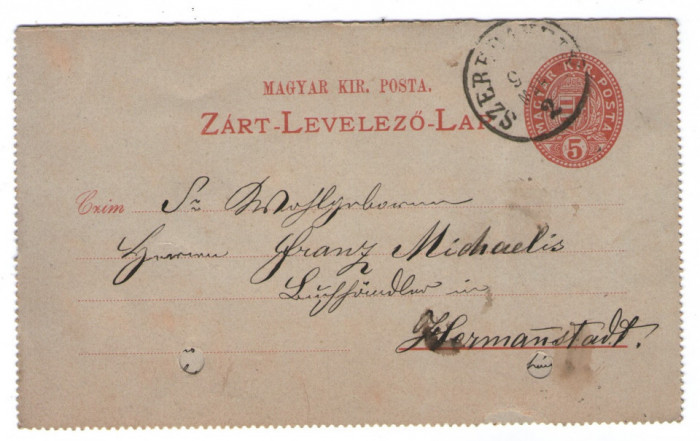 MAGYAR KIR. POSTA.
ZÁRT-LEVELEZŐ-LAP
MAGYAR KIR. POSTA
5
SZERD
Czim Sr Wohlgeboren
Herrn Franz Michaelis
Buchhändler in
Hermannstadt.